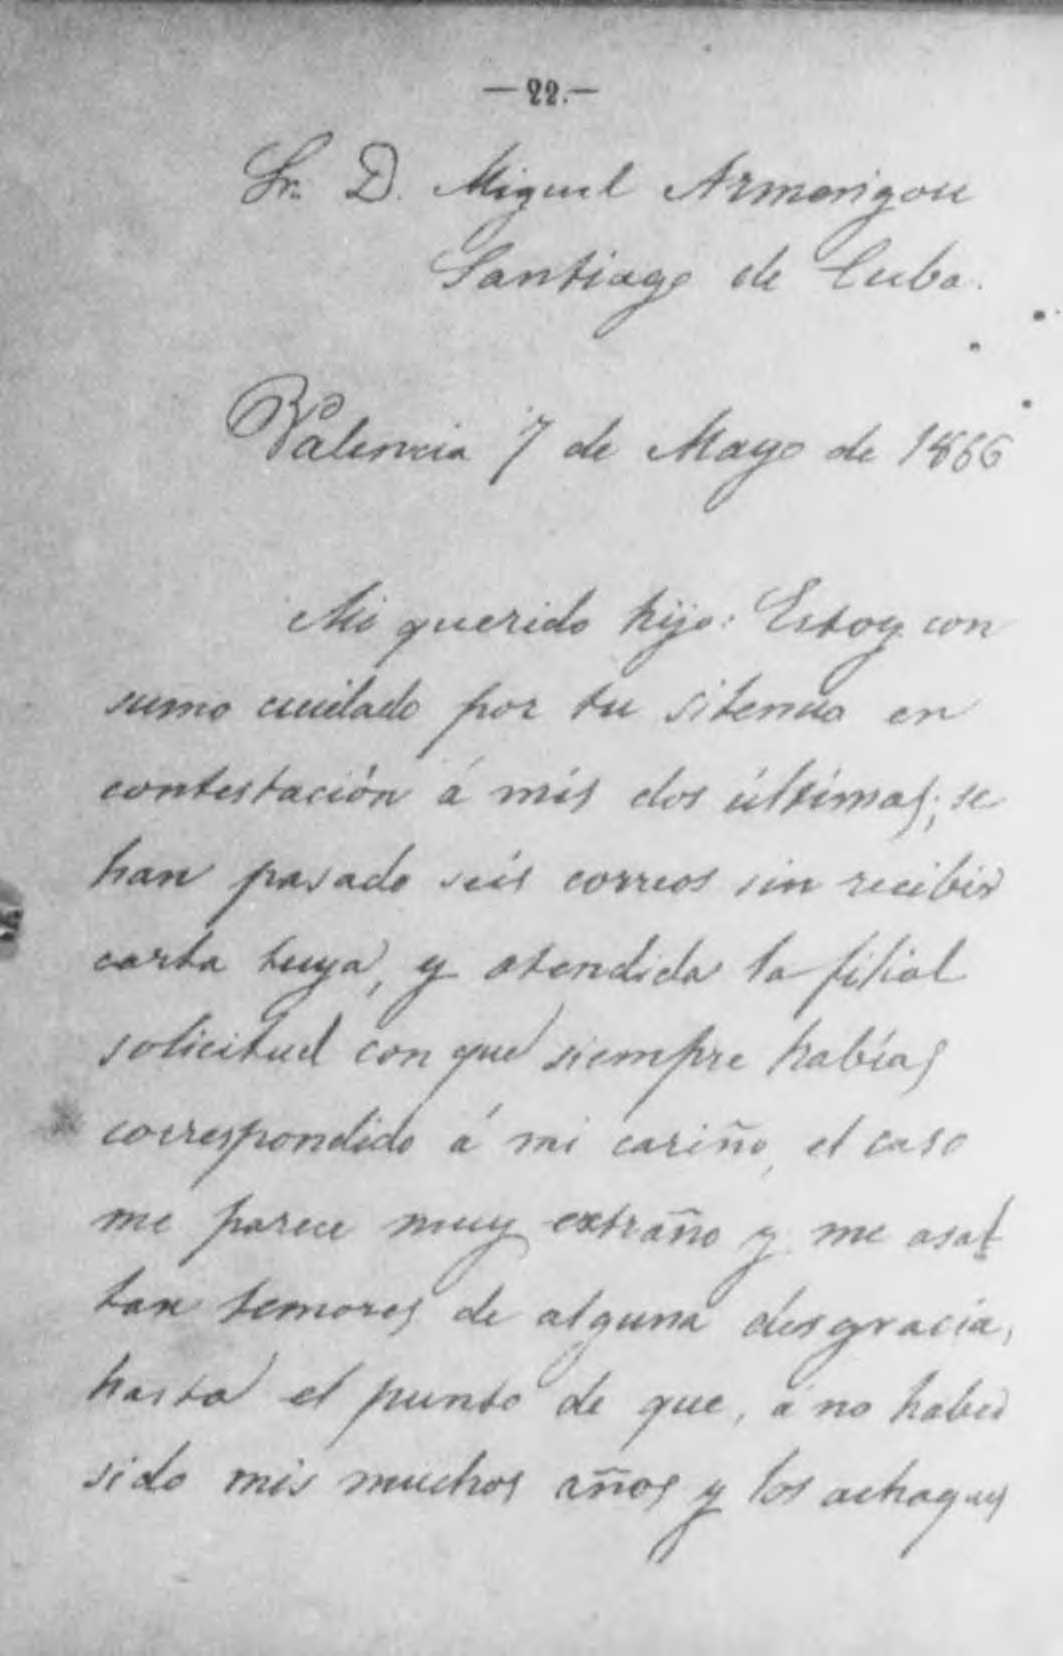 —22.—
Sr. D. Miguel Armerigou
Santiago de Cuba.
Valencia 7 de Mayo de 1866
Mi querido hijo: Estoy con
sumo cuidado por tu silencio en
contestación á mis dos últimas; se
han pasado seis correos sin recibir
carta tuya, y atendida la filial
solicitud con que siempre habías
correspondido á mi cariño, el caso
me parece muy extraño y me asal-
tan temores de alguna desgracia,
hasta el punto de que, á no haber
sido mis muchos años y los achaques